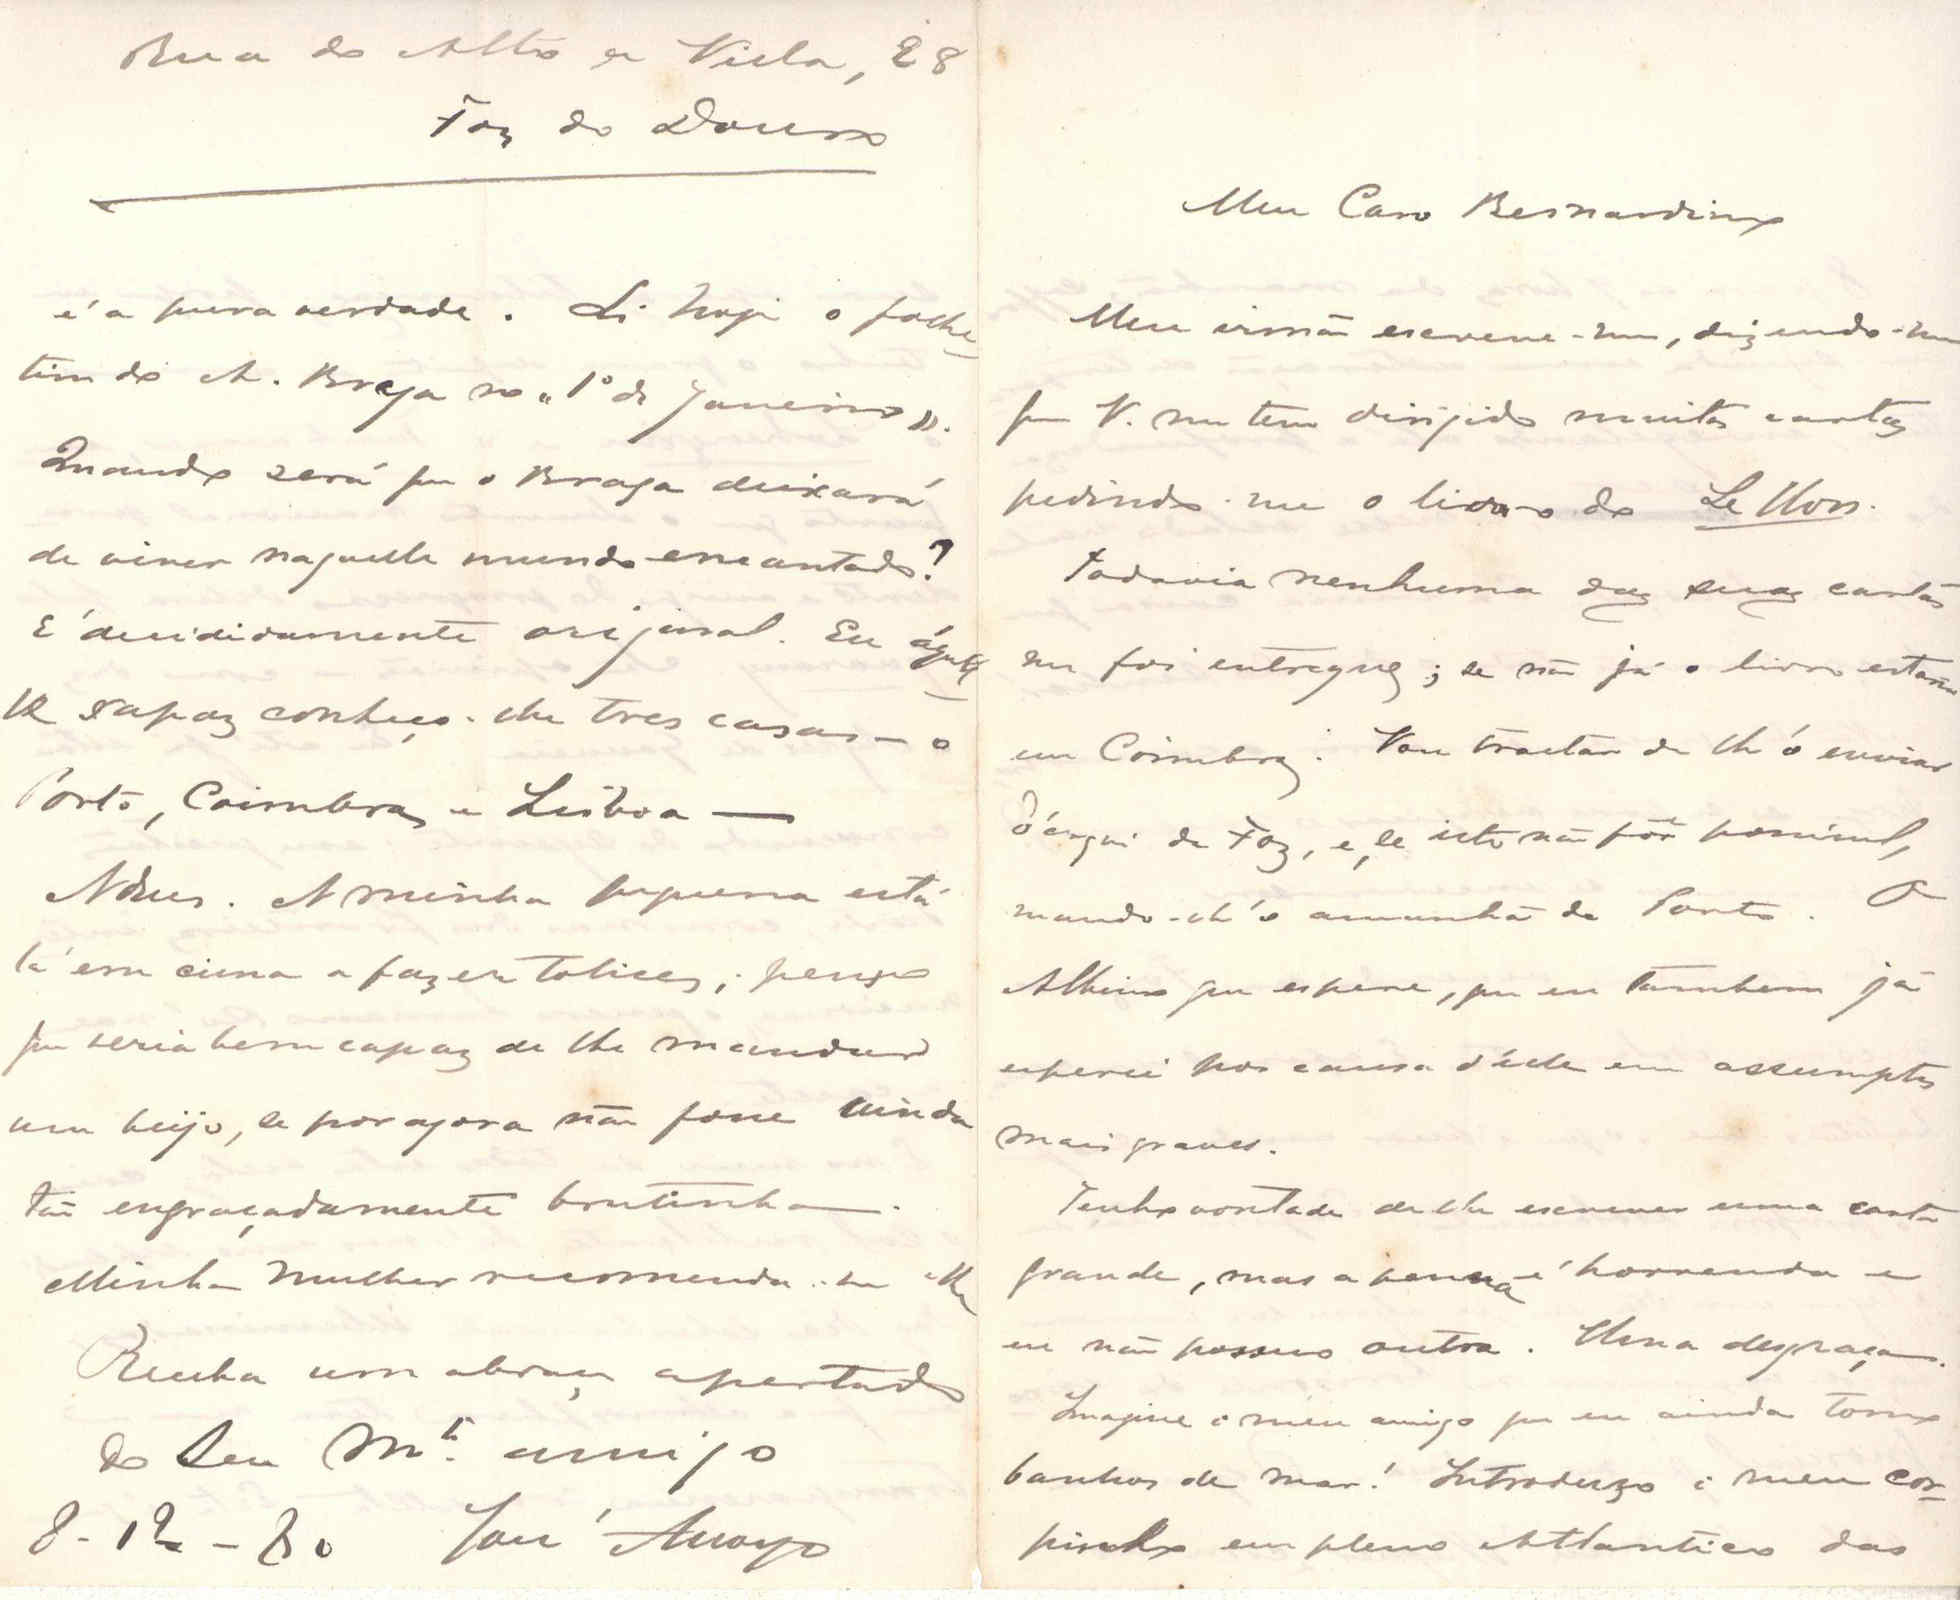 Meu Caro Bernardino
Meu irmão escreve-me, dizendo-me
que V. me tem dirigido muitas cartas
pedindo-me o livro do Le Hon.
Todavia nenhuma das suas cartas
me foi entregue; se não já o livro estaria
em Coimbra. Vou tractar de lh'o enviar
d'aqui da Foz, e, se isto não fôr possivel,
mando-lh'o amanhã do Porto. O
Albino que espere, que eu tambem já
esperei por causa d'elle em assumptos
mais graves.
Tenho vontade de lhe escrever uma carta
grande, mas a penna é horrenda e
eu não possuo outra. Uma desgraça.
Imagine o meu amigo que eu ainda tomo
banhos de mar! Introduzo o meu cor-
pinho em pleno Atlantico das
Rua do Alto de Villa, 28
Foz do Douro
é a pura verdade. Li hoje o folhe-
tim do A. Braga no «1º de Janeiro».
Quando será que o Braga deixará
de viver naquelle mundo encantado?
É decididamente original. Eu áquel-
le rapaz conheço-lhe tres casas — o
Porto, Coimbra e Lisboa —
Adeus. A minha pequena está
lá em cima a fazer tolices; penso
que seria bem capaz de lhe mandar
um beijo, se por agora não fosse ainda
tão engraçadamente brutinha.
Minha mulher recomenda-se-lhe
Receba um abraço apertado
do Seu Mto. amigo
8-12-80 José Arroyo